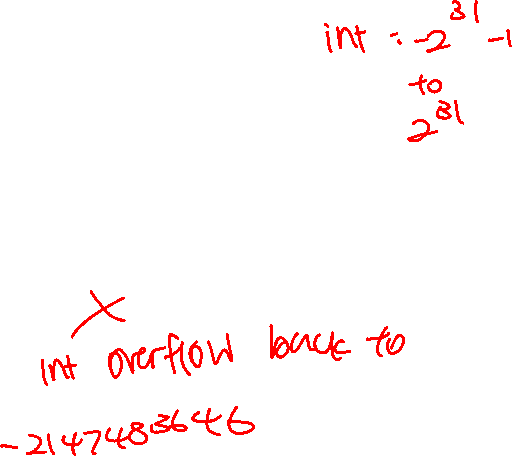 int : -2^31 -1
to
2^31
int overflow back to
-2147483646